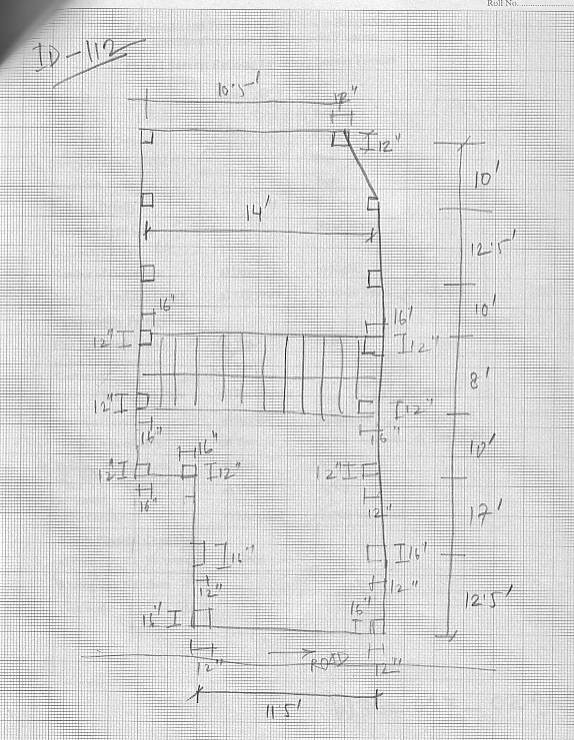 Roll No.
ID-112
10'5-'
12"
12"
10'
14'
12'5'
16"
16'
10'
12"
12"
8'
12"
12"
16"
16"
16"
10'
12"
12"
12"
16"
12"
17'
16"
16'
12"
12"
12'5'
16"
16"
ROAD
12"
12"
11'5'